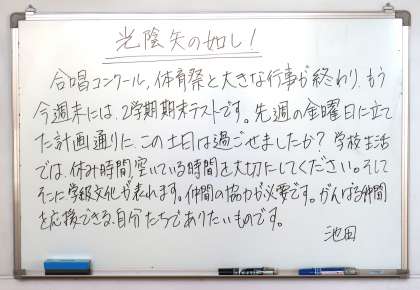 光陰矢の如し！
合唱コンクール，体育祭と大きな行事が終わり，もう
今週末には，2学期期末テストです。先週の金曜日に立て
た計画通りに，この土日は過ごせましたか？学校生活
では，休み時間，空いている時間を大切にしてください。そして
そこに学級文化が表れます。仲間の協力が必要です。がんばる仲間
を応援できる，自分たちでありたいものです。
池田